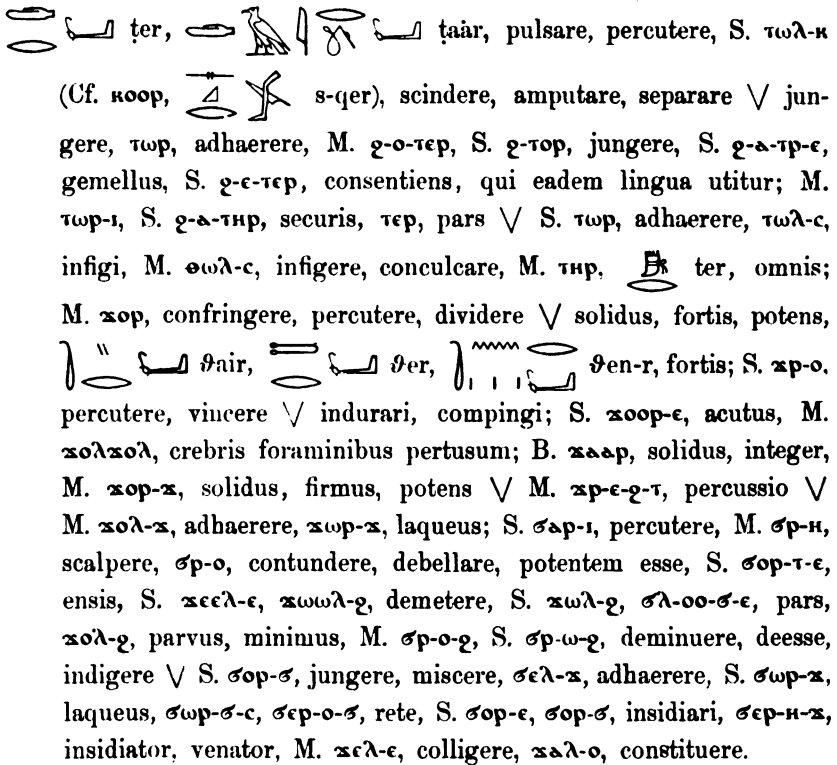 𓂧𓂋 𓂝 ṭer, 𓂧𓄿𓇋𓂋 𓂝 ṭaȧr, pulsare, percutere, S. ⲧⲱⲗ-ⲕ
(Cf. ⲕⲟⲟⲣ, s-qer), scindere, amputare, separare ⋁ jun-
gere, ⲧⲱⲣ, adhaerere, M. ϩ-ⲟ-ⲧⲉⲣ, S. ϩ-ⲧⲟⲣ, jungere, S. ϩ-ⲁ-ⲧⲣ-ⲉ,
gemellus, S. ϩ-ⲉ-ⲧⲉⲣ, consentiens, qui eadem lingua utitur; M.
ⲧⲱⲣ-ⲓ, S. ϩ-ⲁ-ⲧⲏⲣ, securis, ⲧⲉⲣ, pars ⋁ S. ⲧⲱⲣ, adhaerere, ⲧⲱⲗ-ⲥ,
infigi, M. ⲑⲱⲗ-ⲥ, infigere, conculcare, M. ⲧⲏⲣ, ter, omnis;
M. ϫⲟⲣ, confringere, percutere, dividere ⋁ solidus, fortis, potens,
ϑair, ϑer, ϑen-r, fortis; S. ϫⲣ-ⲟ,
percutere, vincere ⋁ indurari, compingi; S. ϫⲟⲟⲣ-ⲉ, acutus, M.
ϫⲟⲗϫⲟⲗ, crebris foraminibus pertusum; B. ϫⲁⲁⲣ, solidus, integer,
M. ϫⲟⲣ-ϫ, solidus, firmus, potens ⋁ M. ϫⲣ-ⲉ-ϩ-ⲧ, percussio ⋁
M. ϫⲟⲗ-ϫ, adhaerere, ϫⲱⲣ-ϫ, laqueus; S. ϭⲁⲣ-ⲓ, percutere, M. ϭⲣ-ⲏ,
scalpere, ϭⲣ-ⲟ, contundere, debellare, potentem esse, S. ϭⲟⲣ-ⲧ-ⲉ,
ensis, S. ϫⲉⲉⲗ-ⲉ, ϫⲱⲱⲗ-ϩ, demetere, S. ϫⲱⲗ-ϩ, ϭⲗ-ⲟⲟ-ϭ-ⲉ, pars,
ϫⲟⲗ-ϩ, parvus, minimus, M. ϭⲣ-ⲟ-ϩ, S. ϭⲣ-ⲱ-ϩ, deminuere, deesse,
indigere ⋁ S. ϭⲟⲣ-ϭ, jungere, miscere, ϭⲉⲗ-ϫ, adhaerere, S. ϭⲱⲣ-ϫ,
laqueus, ϭⲱⲣ-ϭ-ⲥ, ϭⲉⲣ-ⲟ-ϭ, rete, S. ϭⲟⲣ-ⲉ, ϭⲟⲣ-ϭ, insidiari, ϭⲉⲣ-ⲏ-ϫ,
insidiator, venator, M. ϫⲉⲗ-ⲉ, colligere, ϫⲁⲗ-ⲟ, constituere.